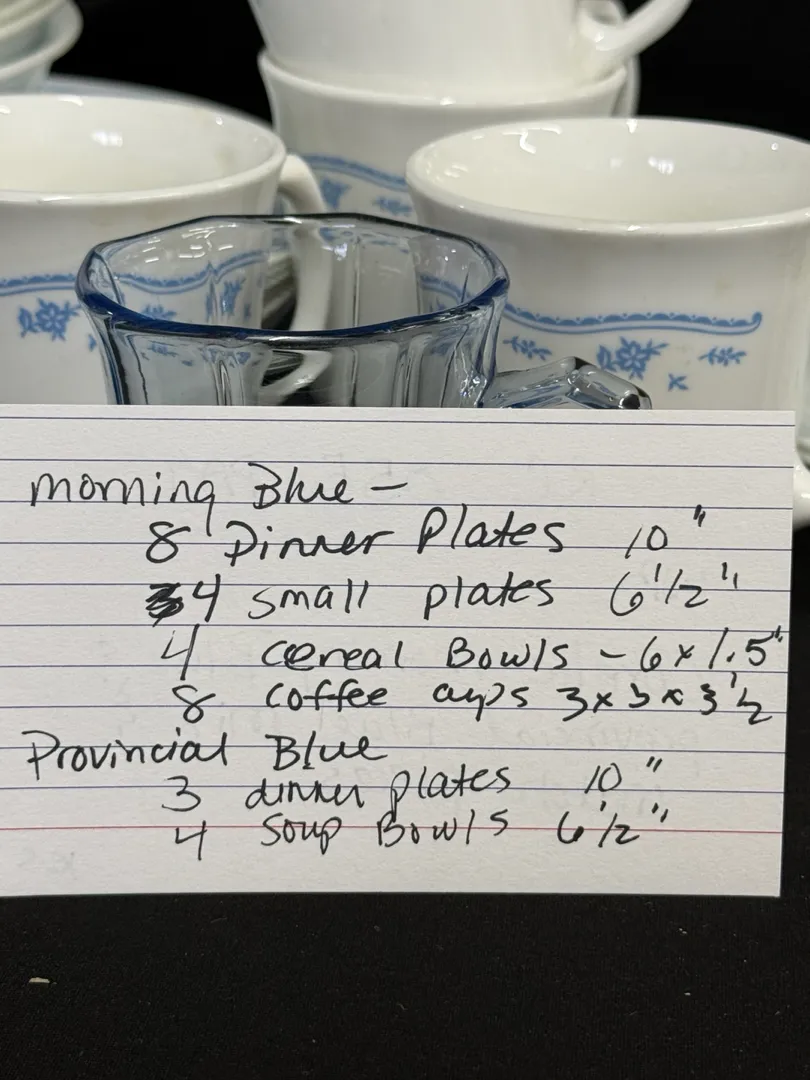 morning Blue –
8 Dinner Plates 10"
4 small plates 6 1/2"
4 cereal Bowls – 6 x 1.5"
8 coffee cups 3 x 3 x 3 1/2
Provincial Blue
3 dinner plates 10"
4 Soup Bowls 6 1/2"